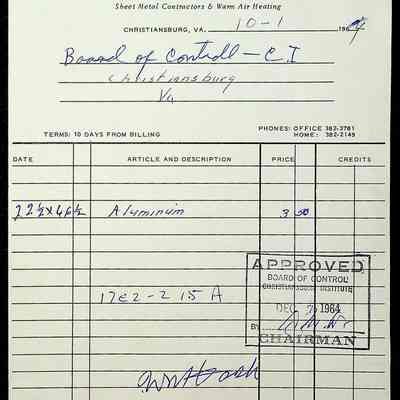 Sheet Metal Contractors & Warm Air Heating
CHRISTIANSBURG, VA. 10-1 196
Board of Controll - C. I
Christiansburg
Va
PHONES: OFFICE 382-3781
TERMS: 10 DAYS FROM BILLING HOME: 382-2149
DATE ARTICLE AND DESCRIPTION PRICE CREDITS
22½ x 46½ Aluminum 3 50
APPROVED
BOARD OF CONTROL
CHRISTIANSBURG INSTITUTE
17E2-215A
DEC 1964
BY
CHAIRMAN